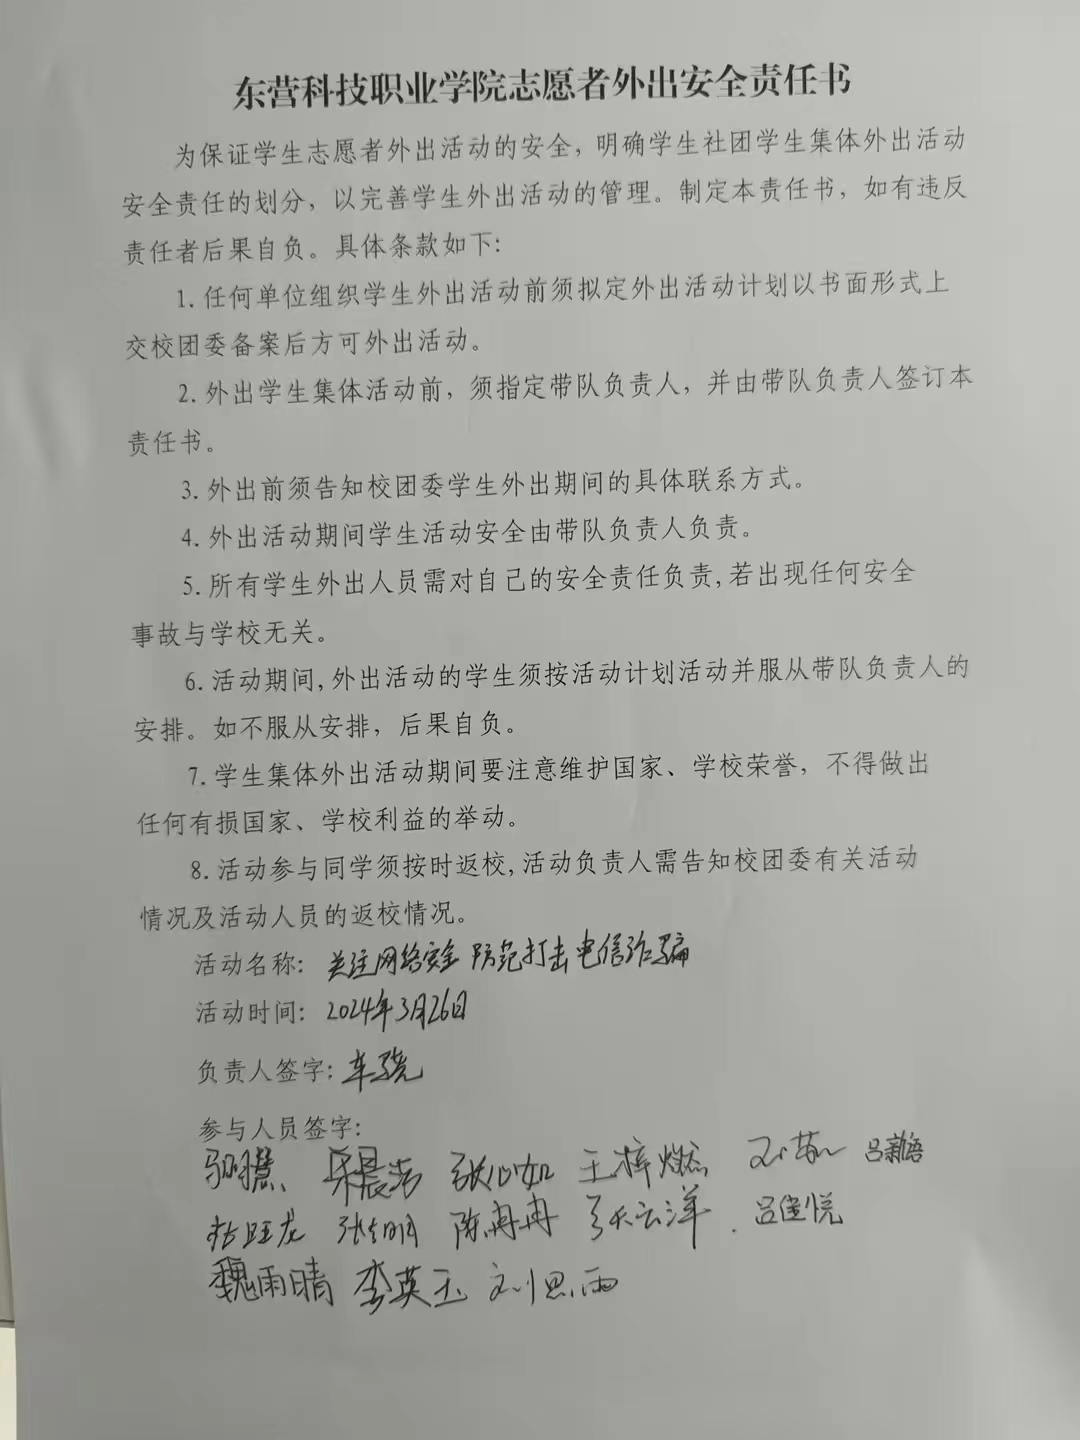 东营科技职业学院志愿者外出安全责任书
为保证学生志愿者外出活动的安全，明确学生社团学生集体外出活动
安全责任的划分，以完善学生外出活动的管理。制定本责任书，如有违反
责任者后果自负。具体条款如下：
1. 任何单位组织学生外出活动前须拟定外出活动计划以书面形式上
交校团委备案后方可外出活动。
2. 外出学生集体活动前，须指定带队负责人，并由带队负责人签订本
责任书。
3. 外出前须告知校团委学生外出期间的具体联系方式。
4. 外出活动期间学生活动安全由带队负责人负责。
5. 所有学生外出人员需对自己的安全责任负责,若出现任何安全
事故与学校无关。
6. 活动期间,外出活动的学生须按活动计划活动并服从带队负责人的
安排。如不服从安排，后果自负。
7. 学生集体外出活动期间要注意维护国家、学校荣誉，不得做出
任何有损国家、学校利益的举动。
8. 活动参与同学须按时返校,活动负责人需告知校团委有关活动
情况及活动人员的返校情况。
活动名称：关注网络安全 防范打击电信诈骗
活动时间：2024年3月26日
负责人签字：车骁
参与人员签字：
张心如 王梓燃
陈冉冉 吕佳悦
魏雨晴 李英玉 刘思雨